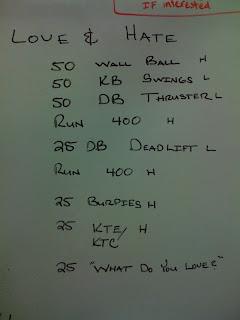 IF interested
LOVE & HATE
50 WALL BALL H
50 KB SWINGS L
50 DB THRUSTER L
RUN 400 H
25 DB DEADLIFT L
RUN 400 H
25 BURPIES H
25 KTE/ H
KTC
25 "WHAT DO YOU LOVE?"